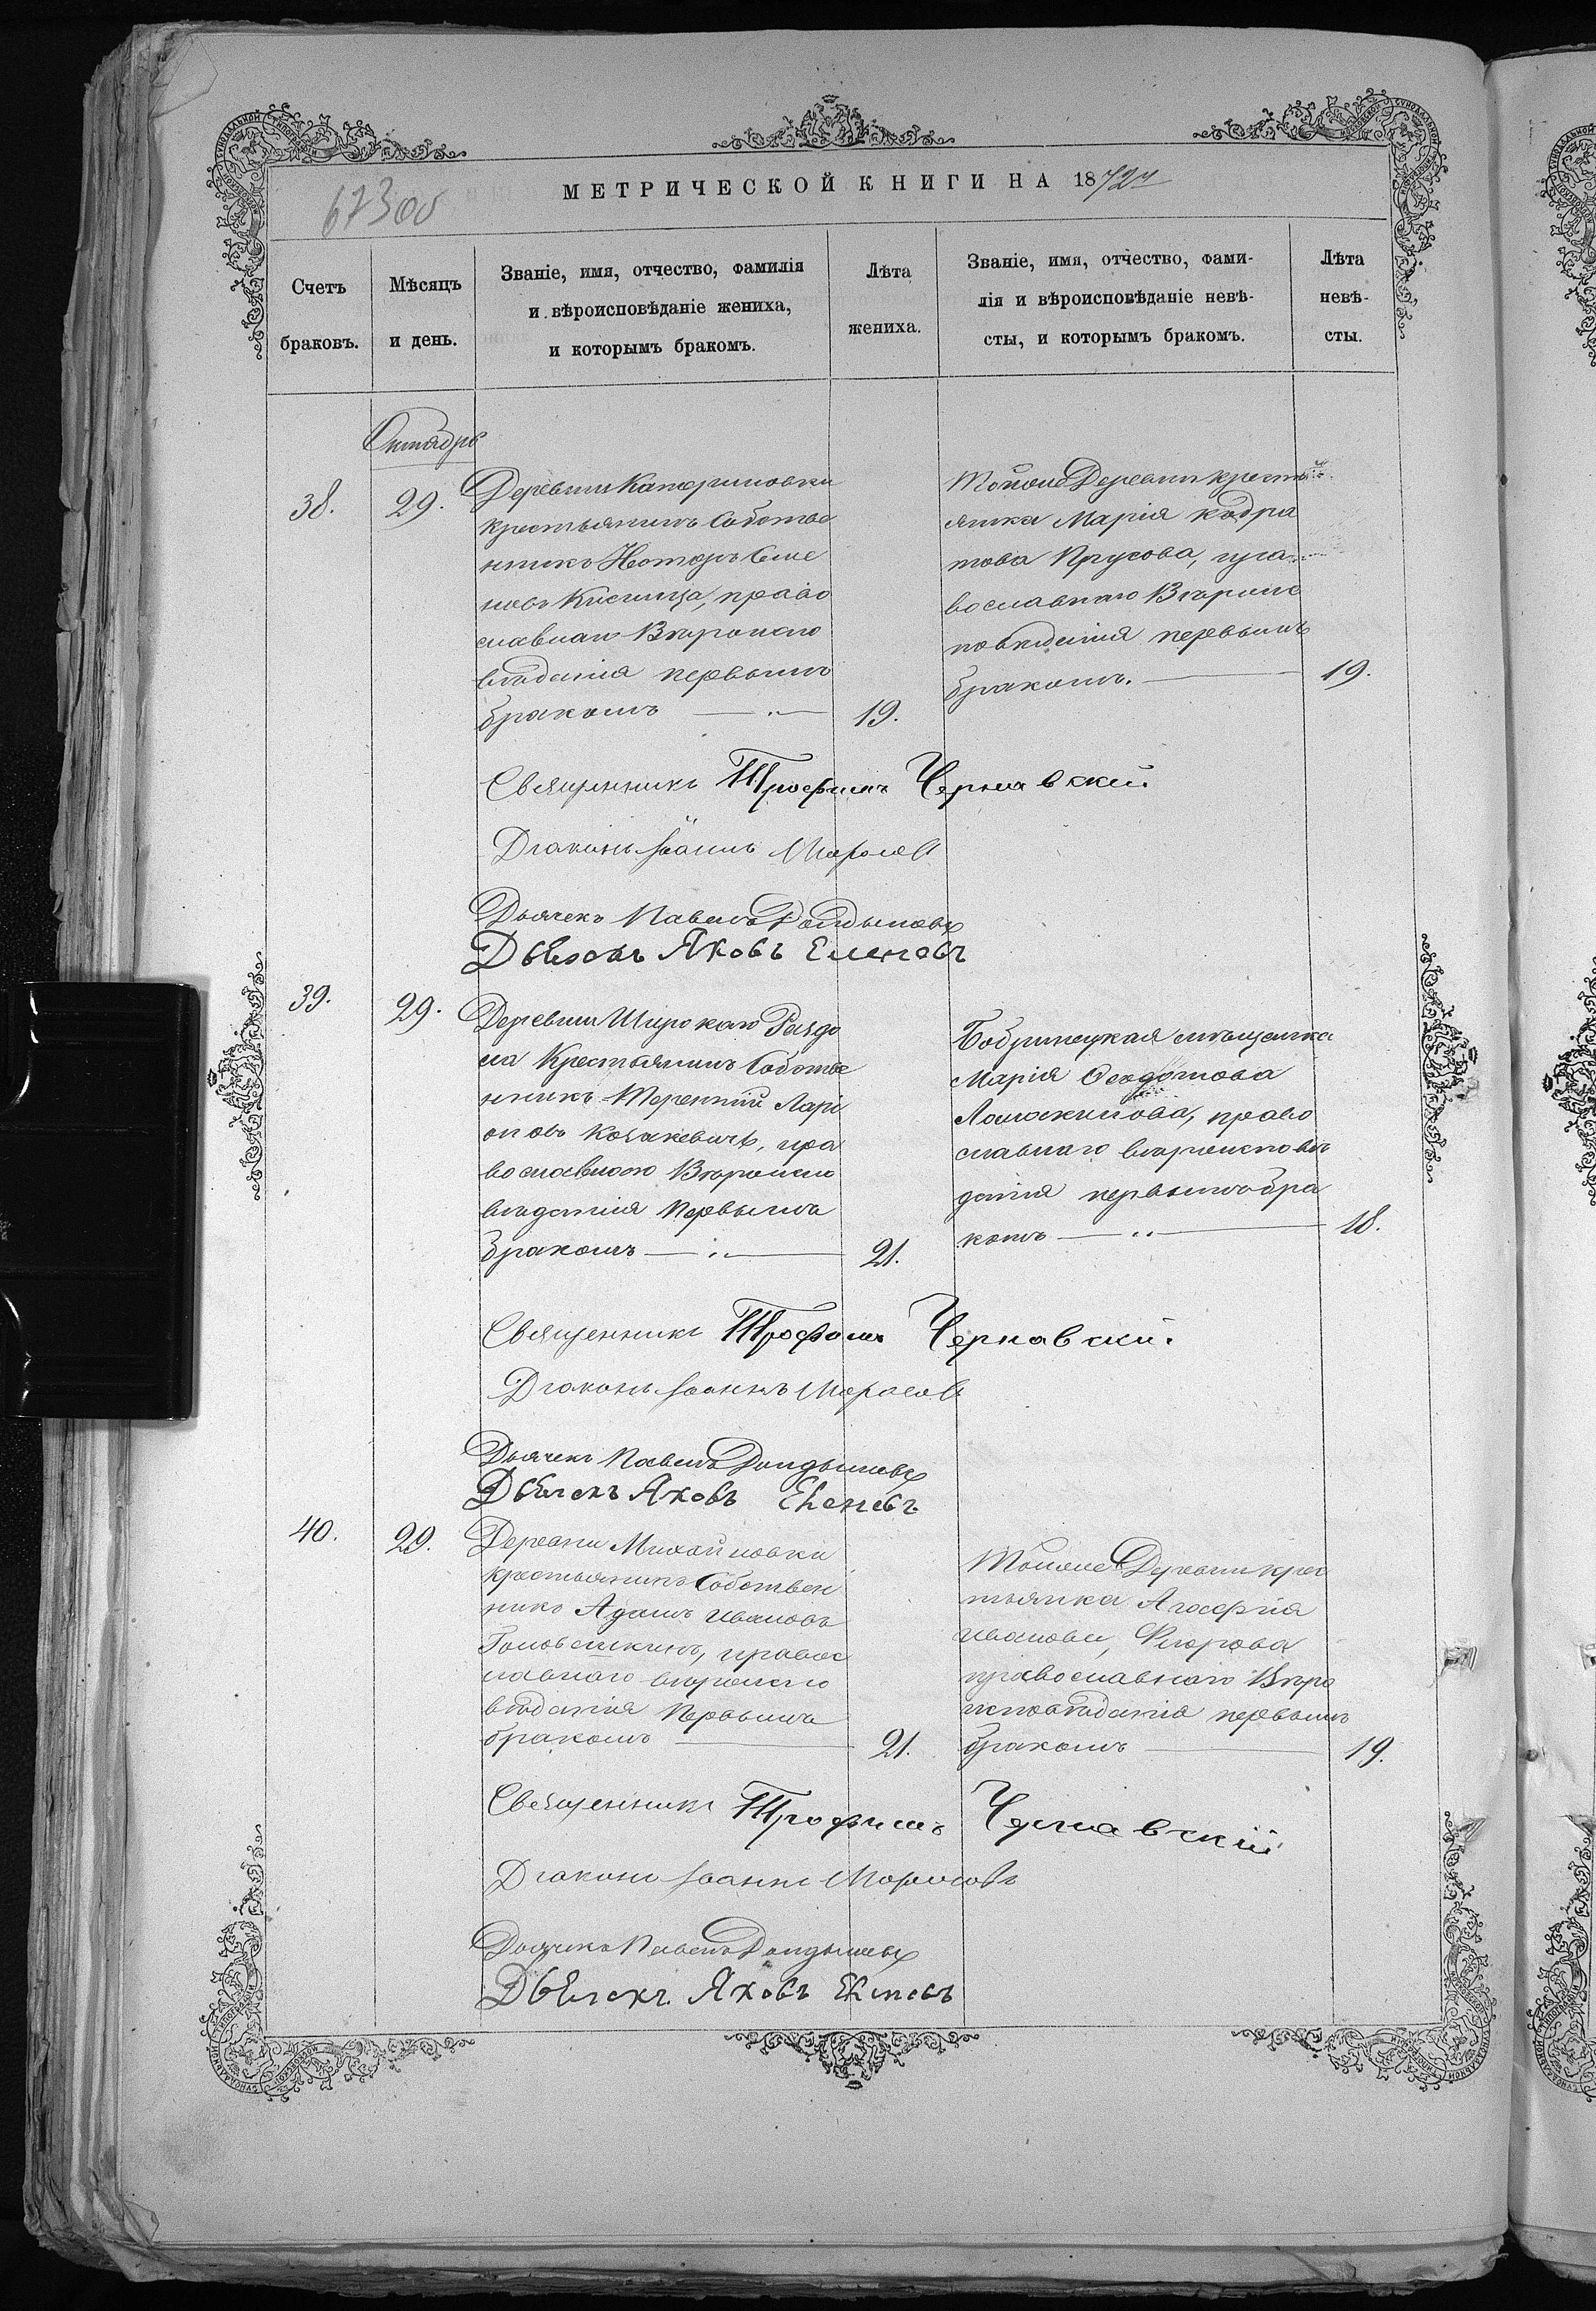 МЕТРИЧЕСКОЙ КНИГИ НА 1872й
Счетъ браковъ.
Мѣсяцъ и день.
Званіе, имя, отчество, фамилія
и вѣроисповѣданіе жениха,
и которымъ бракомъ.
Лѣта жениха.
Званіе, имя, отчество, фами-
лія и вѣроисповѣданіе невѣ-
сты, и которымъ бракомъ.
Лѣта невѣ-
сты.
Октябрь
38.
29.
Деревни Катериновки
крестьянинъ Собстве
нникъ
Кислица, право
славнаго Вѣроиспо
вѣданія первымъ
бракомъ
19.
Тойже Деревни кресть
янка Марія Кодра
това Прусова, пра
вославнаго Вѣроис
повѣданія первымъ
бракомъ.
19.
Священникъ Трофимъ Чернавскій
Діаконъ Іоаннъ
Дьячекъ Павелъ
Дьячокъ Яковъ
39.
29.
Деревни Широкаго Раздо
ла Крестьянинъ Собстве
нникъ Терентій Ларі
оновъ Козакевичъ, пра
вославнаго Вѣроиспо
вѣданія Первымъ
бракомъ
21.
Бобринецкая мѣщанка
Марія Ѳеодотова
православнаго вѣроисповѣ
данія первымъ бра
комъ
18.
Священникъ Трофимъ Чернавскій.
Діаконъ Іоаннъ
Дьячекъ Павелъ
Дьячекъ Яковъ
40.
29.
Деревни Михайловки
крестьянинъ Собствен
никъ Адамъ Ивановъ
правос
лавнаго вѣроиспо
вѣданія Первымъ
бракомъ
21.
Тойже Деревни крес
тьянка Агафія
Иванова,
православнаго Вѣро
исповѣданія первымъ
бракомъ
19.
Священникъ Трофимъ Чернавскій
Діаконъ Іоаннъ
Дьячекъ Павелъ
Дьячекъ Яковъ